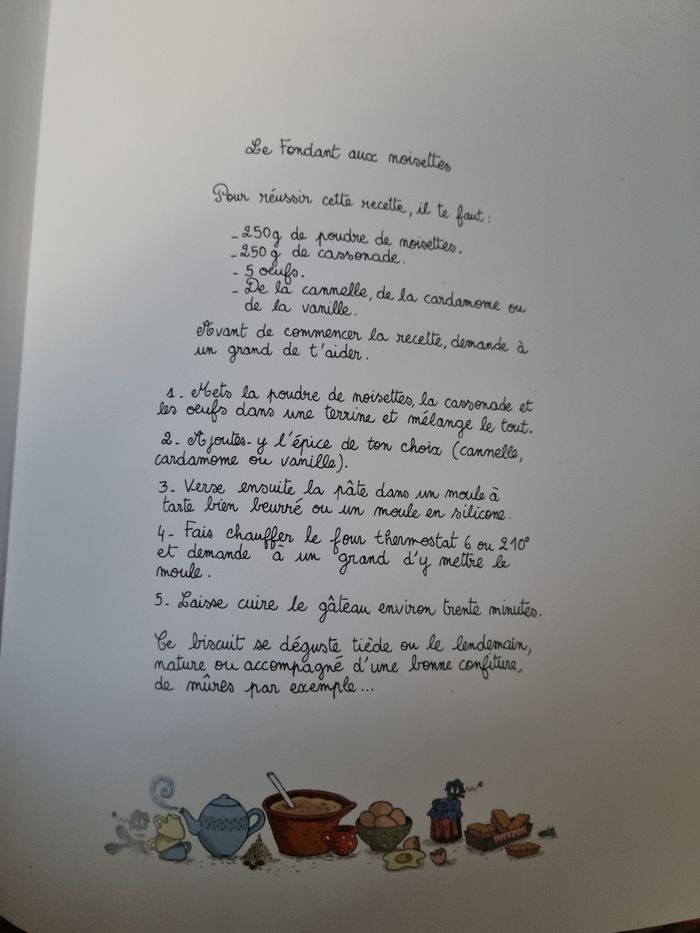 Le Fondant aux noisettes
Pour réussir cette recette, il te faut :
- 250g de poudre de noisettes.
- 250g de cassonade.
- 5 oeufs.
- De la cannelle, de la cardamome ou
de la vanille.
Avant de commencer la recette, demande à
un grand de t'aider.
1. Mets la poudre de noisettes, la cassonade et
les oeufs dans une terrine et mélange le tout.
2. Ajoutes-y l'épice de ton choix (cannelle,
cardamome ou vanille).
3. Verse ensuite la pâte dans un moule à
tarte bien beurré ou un moule en silicone.
4. Fais chauffer le four thermostat 6 ou 210°
et demande à un grand d'y mettre le
moule.
5. Laisse cuire le gâteau environ trente minutes.
Ce biscuit se déguste tiède ou le lendemain,
nature ou accompagné d'une bonne confiture,
de mûres par exemple...